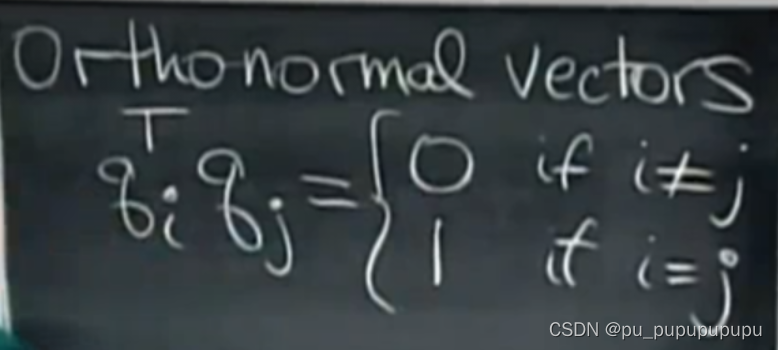 Orthonormal vectors
qᵢᵀqⱼ = { 0 if i ≠ j
1 if i = j
CSDN @pu_pupupupupu